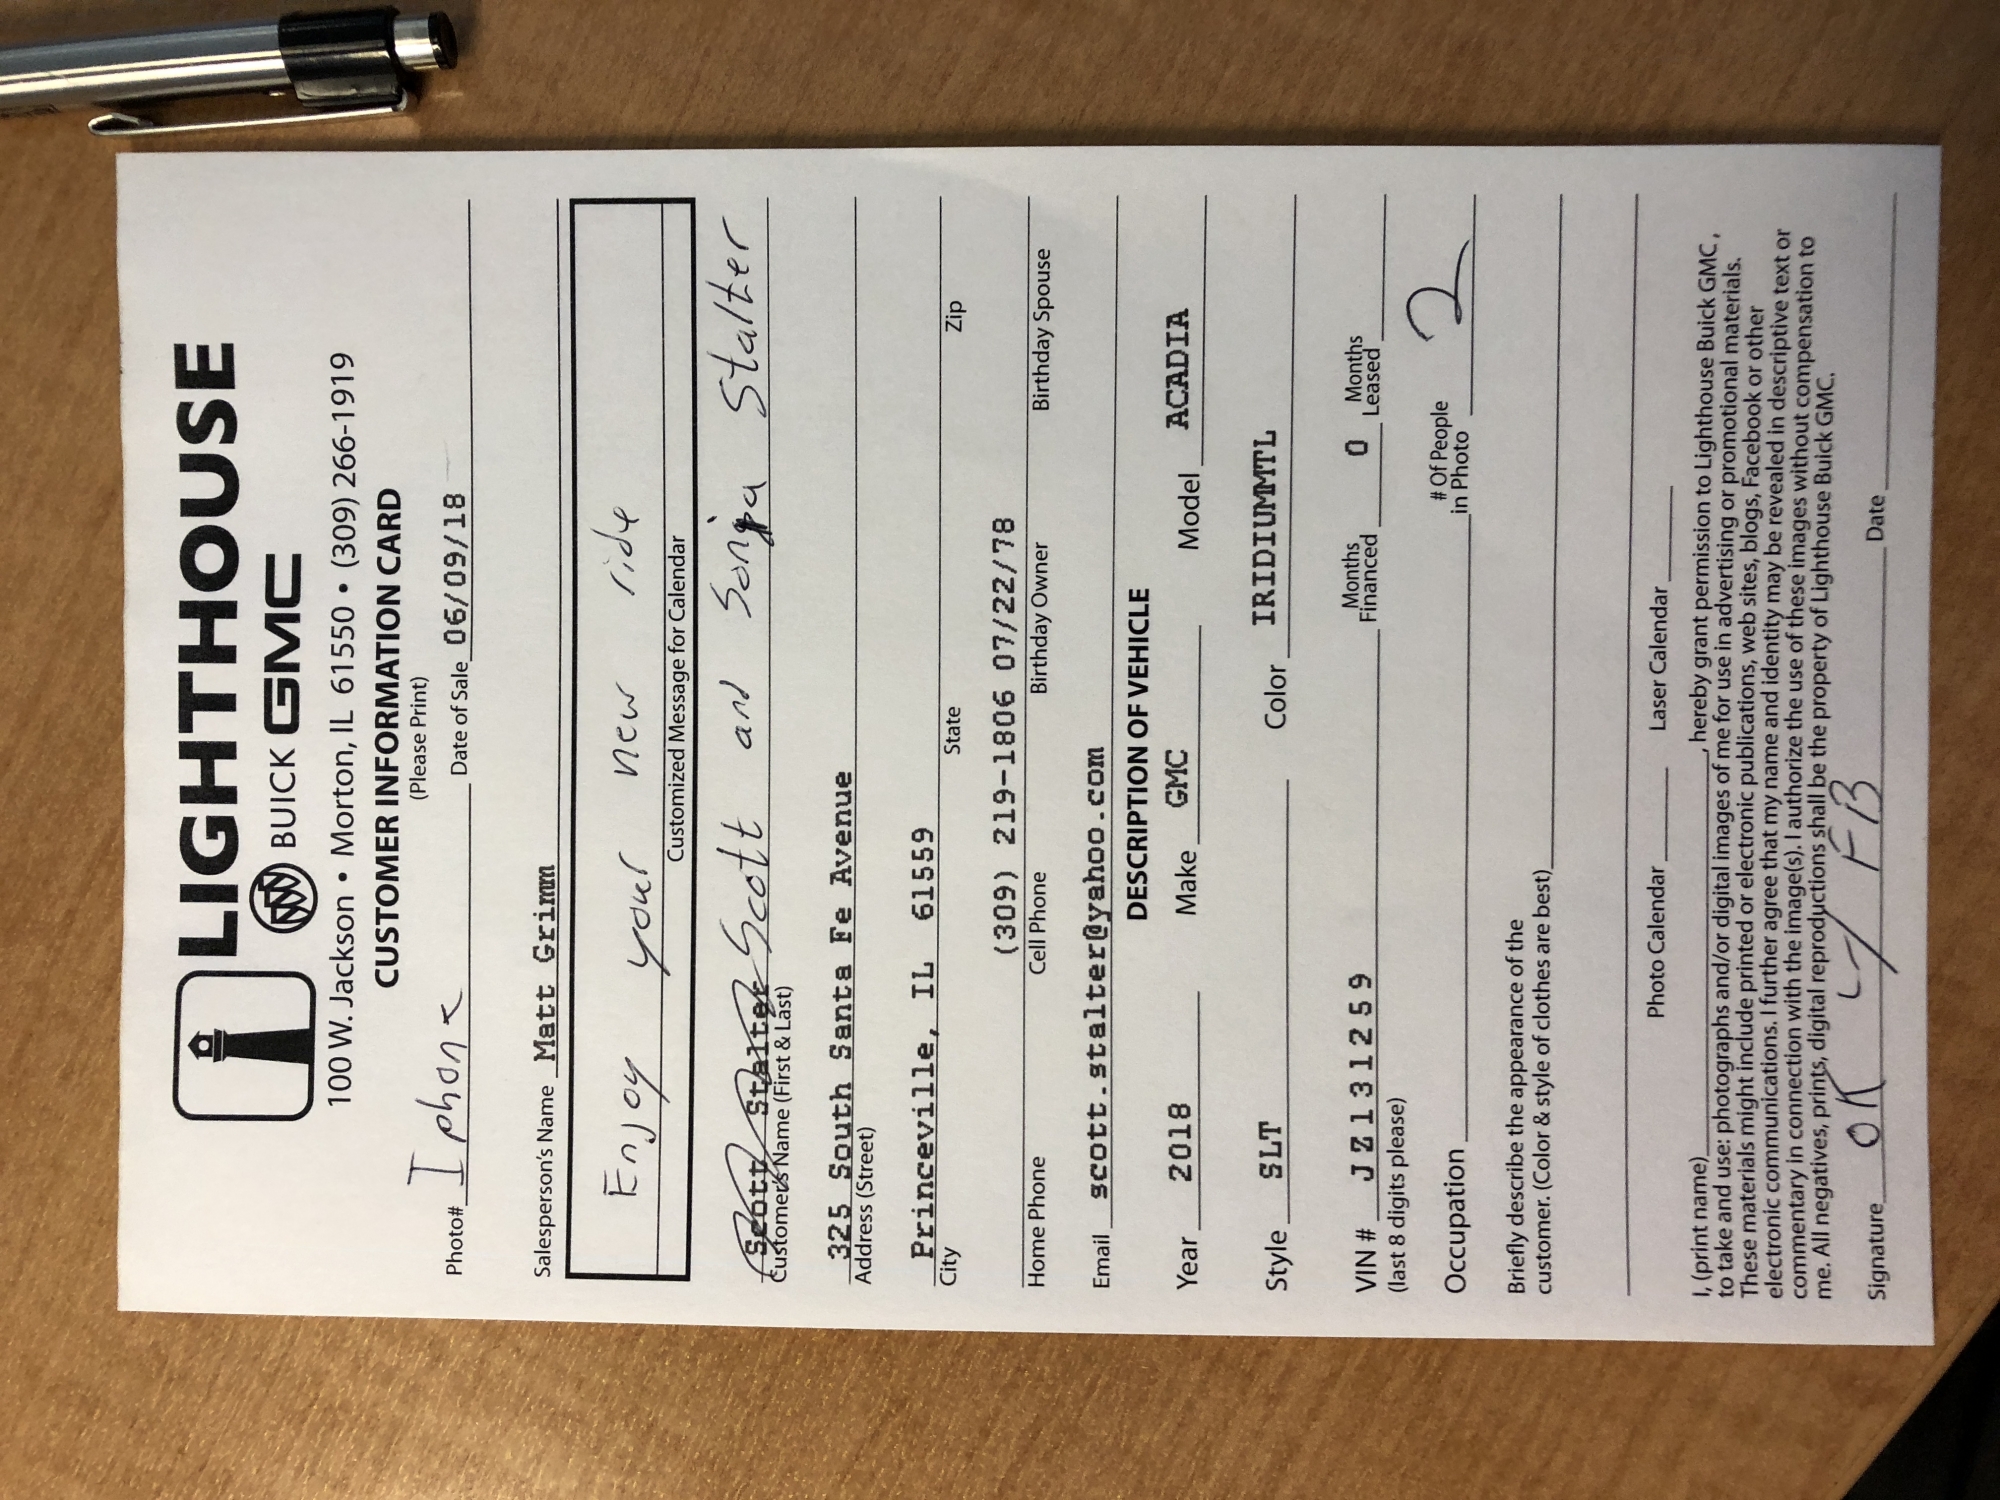 LIGHTHOUSE
BUICK GMC
100 W. Jackson • Morton, IL 61550 • (309) 266-1919
CUSTOMER INFORMATION CARD
(Please Print)
Photo# Iphone Date of Sale 06/09/18
Salesperson's Name Matt Grimm
Enjoy your new ride
Customized Message for Calendar
Scott Stalter Scott and Sonja Stalter
Customer's Name (First & Last)
325 South Santa Fe Avenue
Address (Street)
Princeville, IL 61559
City State Zip
(309) 219-1806 07/22/78
Home Phone Cell Phone Birthday Owner Birthday Spouse
Email scott.stalter@yahoo.com
DESCRIPTION OF VEHICLE
Year 2018 Make GMC Model ACADIA
Style SLT Color IRIDIUMMTL
VIN # JZ131259 Months Financed 0 Months Leased
(last 8 digits please)
Occupation # Of People in Photo 2
Briefly describe the appearance of the
customer. (Color & style of clothes are best)
Photo Calendar Laser Calendar
I, (print name) , hereby grant permission to Lighthouse Buick GMC ,
to take and use: photographs and/or digital images of me for use in advertising or promotional materials.
These materials might include printed or electronic publications, web sites, blogs, Facebook or other
electronic communications. I further agree that my name and identity may be revealed in descriptive text or
commentary in connection with the image(s). I authorize the use of these images without compensation to
me. All negatives, prints, digital reproductions shall be the property of Lighthouse Buick GMC.
Signature OK FB Date